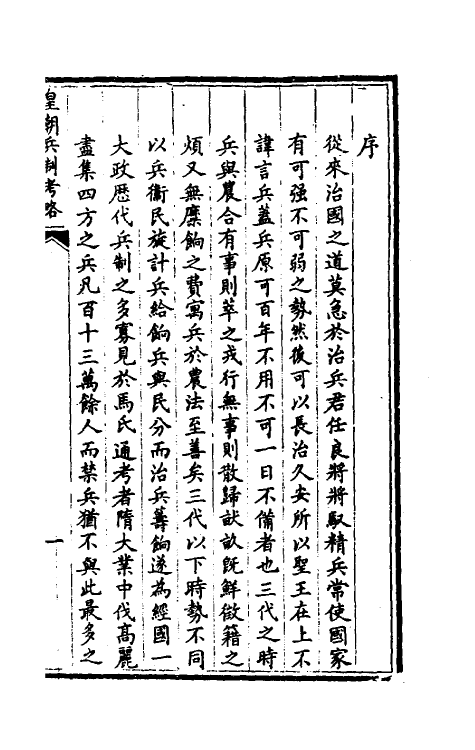 序
從來治國之道莫急於治兵君任良將將馭精兵常使國家
有可强不可弱之勢然後可以長治久安所以聖王在上不
諱言兵蓋兵原可百年不用不可一日不備者也三代之時
兵與農合有事則萃之戎行無事則散歸畎畝旣鮮徵籍之
煩又無糜餉之費寓兵於農法至善矣三代以下時勢不同
以兵衞民旋計兵給餉兵與民分而治兵籌餉遂為經國一
大政歷代兵制之多寡見於馬氏通考者隋大業中伐高麗
盡集四方之兵凡百十三萬餘人而禁兵猶不與此最多之
皇朝兵制考略
一